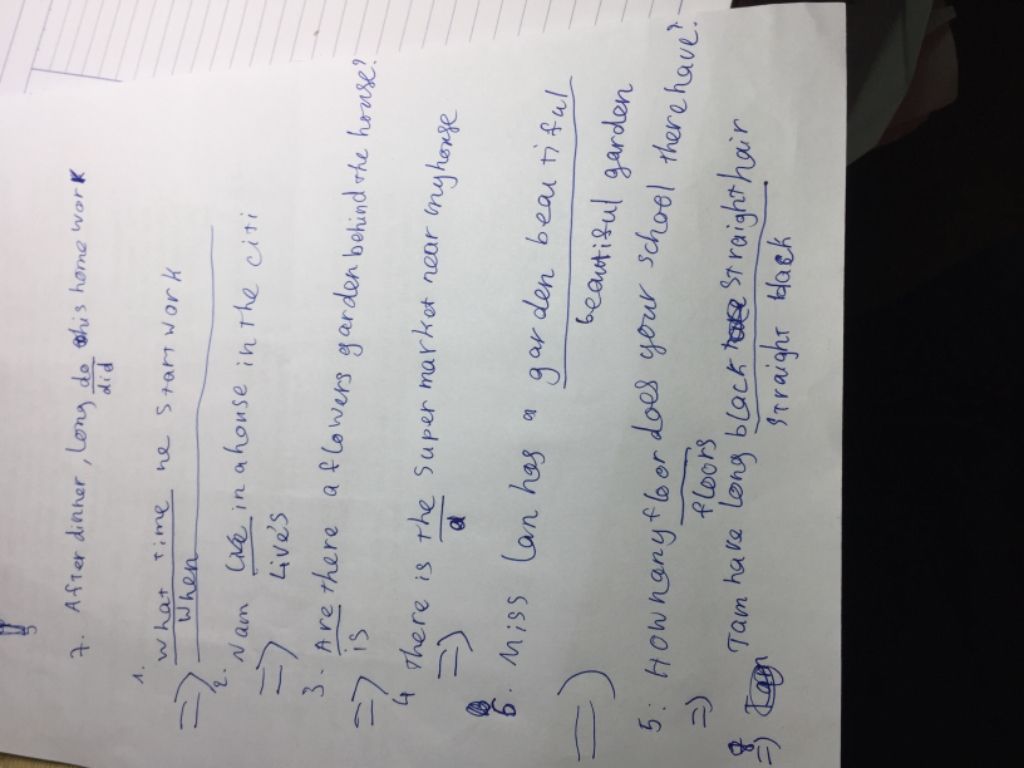 7. After dinner, long do this home work
did
1.
What time he start work
When
=>
2. Nam live in a house in the citi
=> Live's
3. Are there a flowers garden behind the house?
=> is
4 There is the Super market near my house
=> a
6. Miss Lan has a garden beautiful
=> beautiful garden
5: How many floor does your school there have?
=> floors
8 Tam have long black straight hair
=> straight black